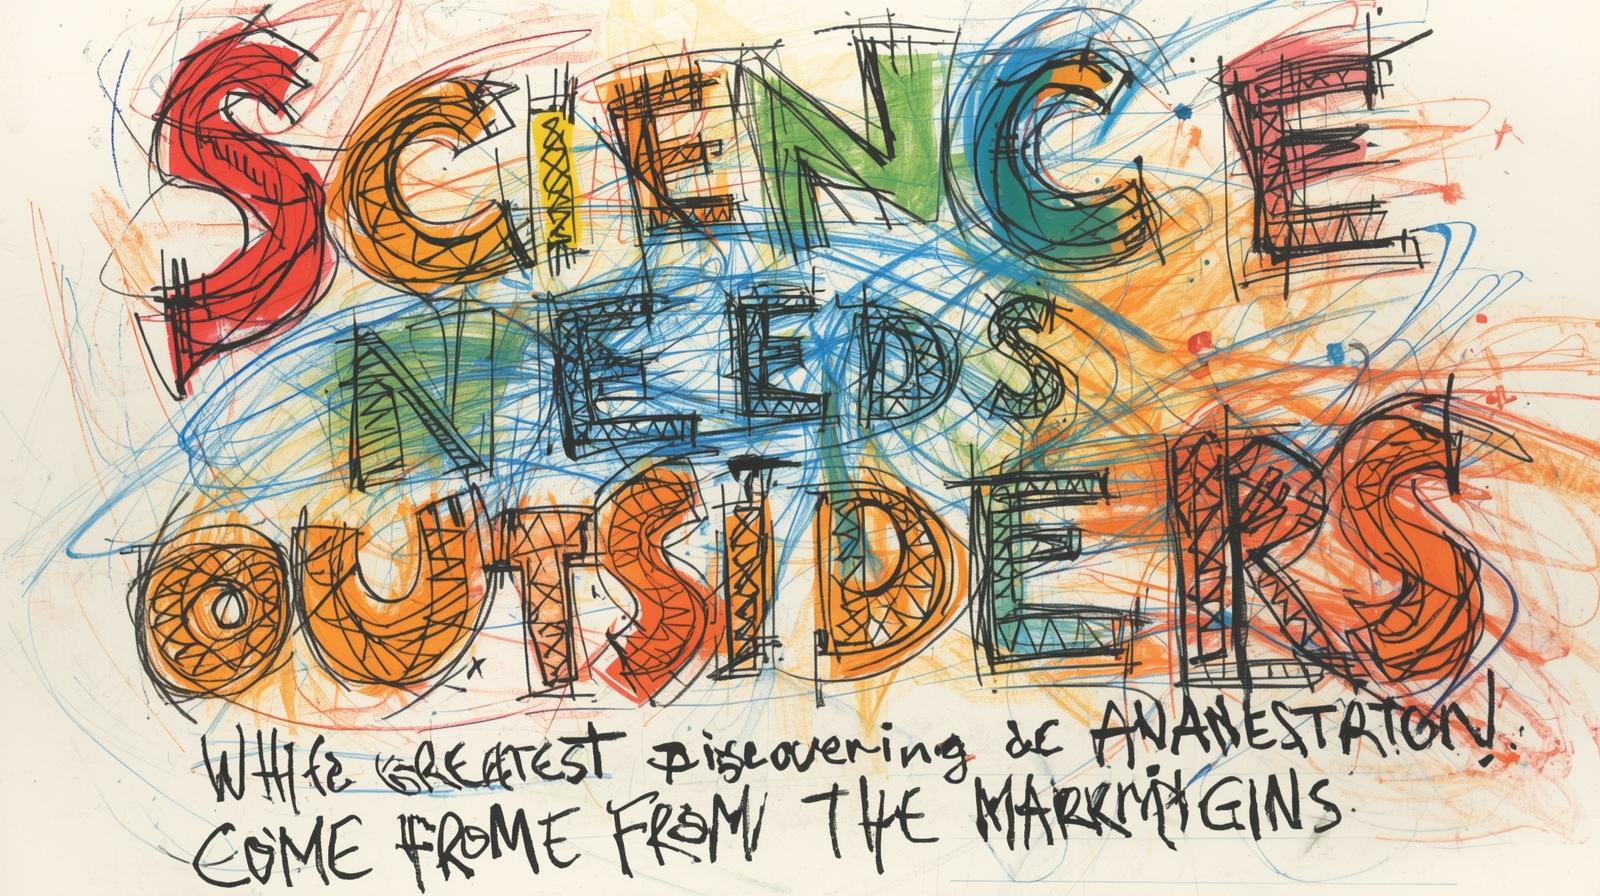 SCIENCE
NEEDS
OUTSIDERS
WHIfe GREATEST Discovering de ANANESTRTION!
COME FROME FROM THE MARKMIGINS.